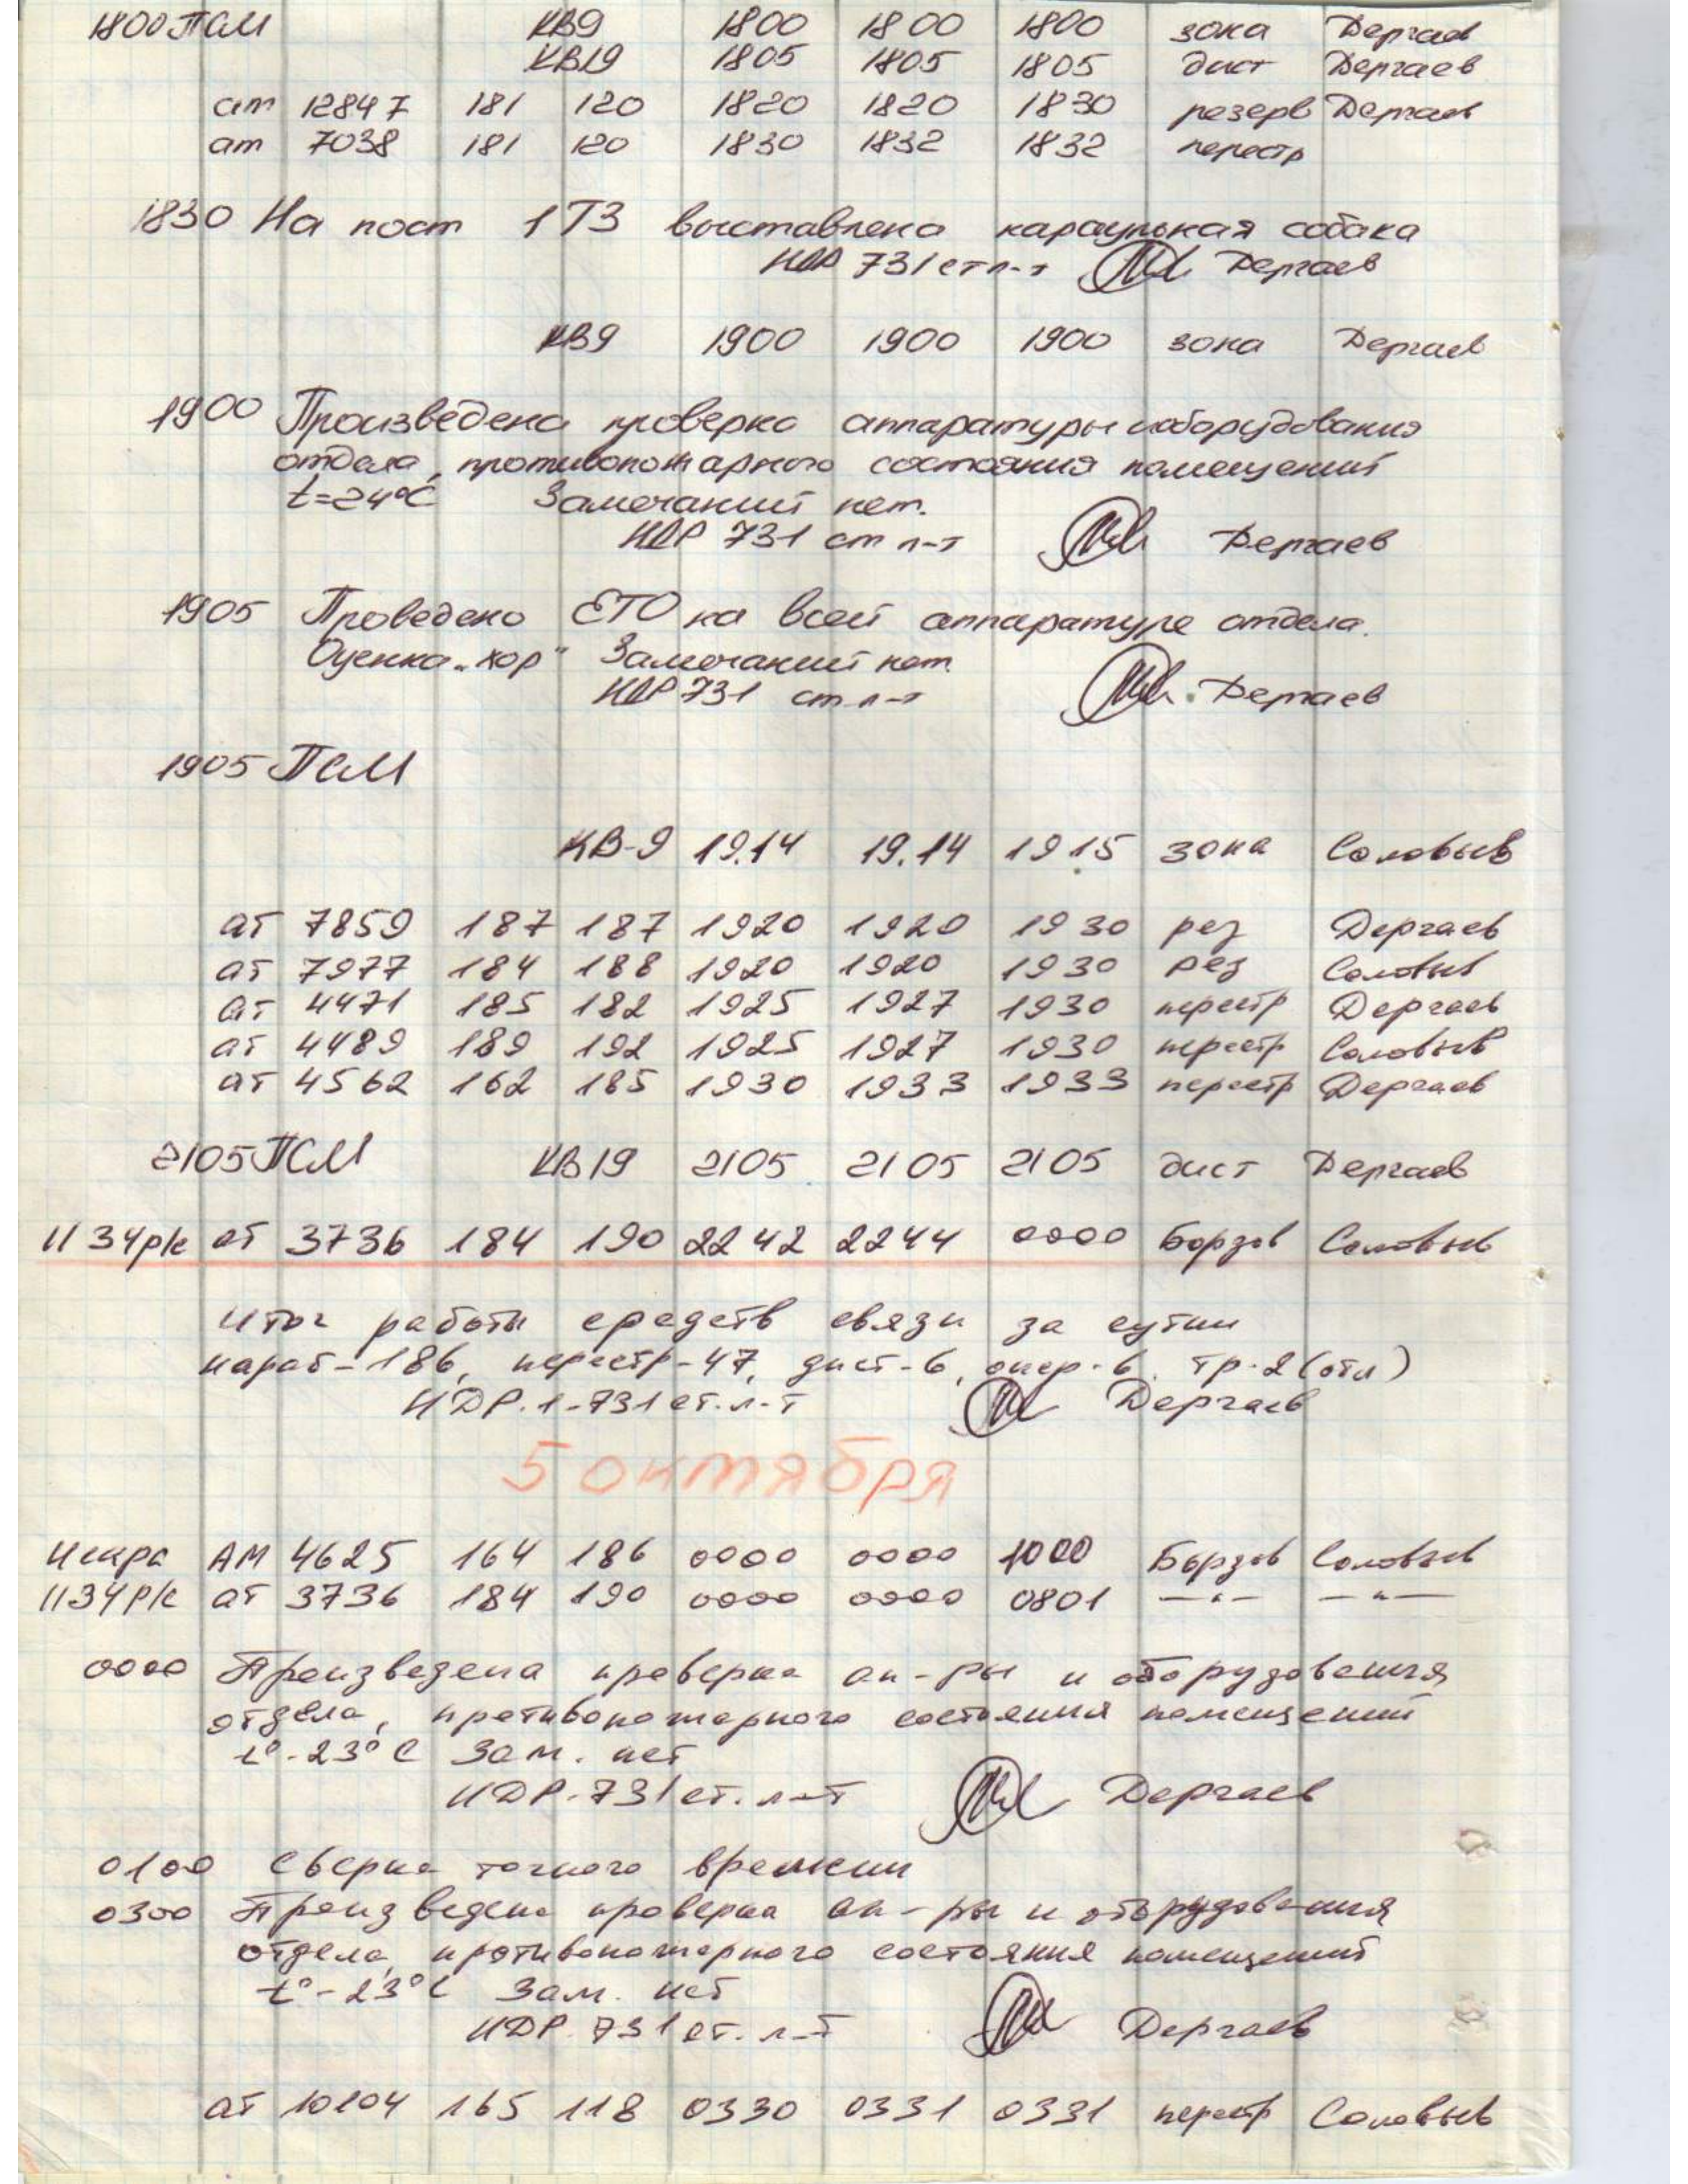 1800 ПСМ КВ9 1800 1800 1800 зона Дергаев
КВ19 1805 1805 1805 дист Дергаев
ат 12847 181 120 1820 1820 1830 резерв Дергаев
ат 7038 181 120 1830 1832 1832 перестр
1830 На пост 1ТЗ выставлена караульная собака
НДР 731 ст л-т Дергаев
КВ9 1900 1900 1900 зона Дергаев
1900 Произведена проверка аппаратуры и оборудования
отдела, противопожарного состояния помещений
t=24°C Замечаний нет.
НДР 731 ст л-т Дергаев
1905 Проведено ЕТО на всей аппаратуре отдела.
Оценка „хор" Замечаний нет.
НДР 731 ст л-т Дергаев
1905 ПСМ
КВ-9 19.14 19.14 19 15 зона Соловьев
ат 7859 187 187 1920 1920 1930 рез Дергаев
ат 7977 184 188 1920 1920 1930 рез Соловьев
ат 4471 185 182 1925 1927 1930 перестр Дергаев
ат 4489 189 192 1925 1927 1930 перестр Соловьев
ат 4562 162 185 1930 1933 1933 перестр Дергаев
2105 ПСМ КВ19 2105 2105 2105 дист Дергаев
1134р/с ат 3736 184 190 2242 2244 0000 Борзов Соловьев
Итог работы средств связи за сутки
караб-186, перестр-47, дист-6, опер-6, тр-2 (отл)
НДР.1-731 ст. л-т Дергаев
5 октября
Искра АМ 4625 164 186 0000 0000 1000 Борзов Соловьев
1134Р/с ат 3736 184 190 0000 0000 0801 —"— —"—
0000 Произведена проверка ап-ры и оборудования
отдела, противопожарного состояния помещений
t°-23°C Зам. нет
НДР-731 ст. л-т Дергаев
0100 Сверка точного времени
0300 Произведена проверка ап-ры и оборудования
отдела, противопожарного состояния помещений
t°-23°C Зам. нет
НДР 731 ст. л-т Дергаев
ат 10104 165 118 0330 0331 0331 перестр Соловьев